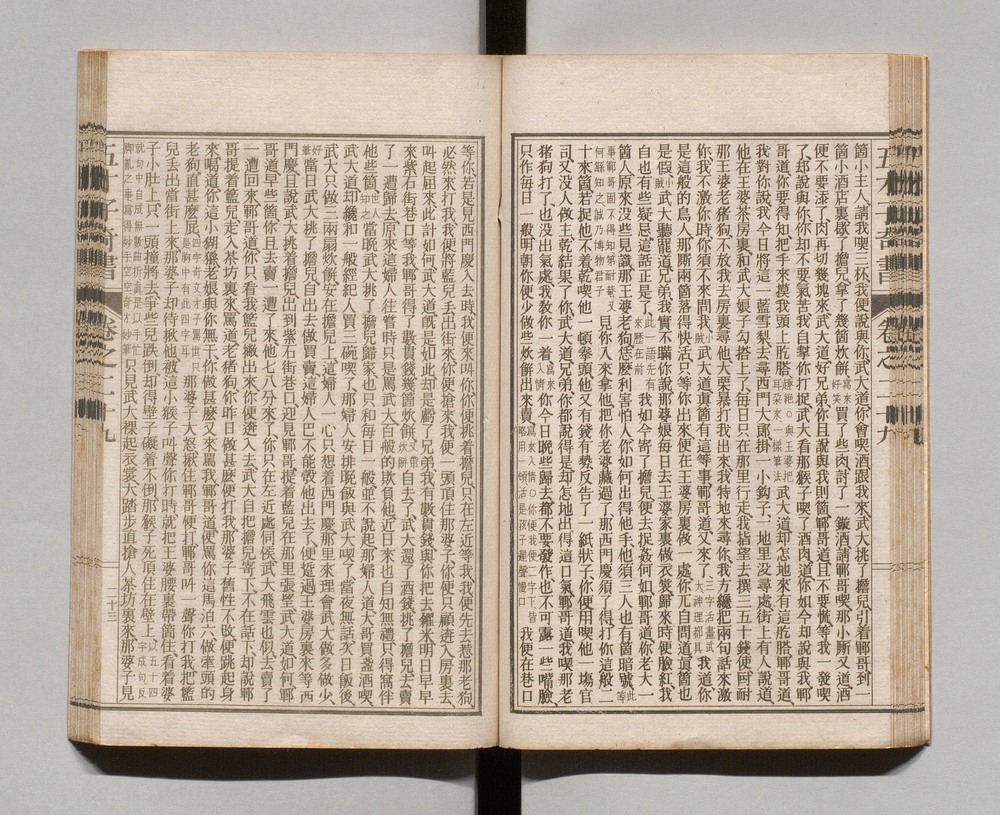 五才子奇書 卷之二十九
箇小主人請我喫三杯我便說與你武大道你會喫酒跟我來武大挑了擔兒引着鄆哥到一
箇小酒店裏歇了擔兒拿了幾箇炊餅寫來好笑買了些肉討了一鏇酒請鄆哥喫那小厮又道酒
便不要添了肉再切幾塊來武大道好兄弟你且說與我則箇鄆哥道且不要慌等我一發喫
了却說與你你却不要氣苦我自幫你打捉武大看那猴子喫了酒肉道你如今却說與我鄆
哥道你要得知把手來摸我頭上武大道却怎地來有這鄆哥道
我對你說我今日將這一藍雪梨去尋西門大郎掛一小鈎子一地里没尋處街上有人說道
他在王婆茶房裏和武大娘子勾搭上了每日只在那里行走我指望去撰三五十錢使叵耐
那王婆老猪狗不放我去房裏尋他大栗暴打我出來我特地來尋你我方纔把兩句話來激
你我不激你時你須不來問我小賊武大道眞箇有這等事鄆哥道又來了三字活畫武大神理都具我道你
是這般的鳥人那厮兩箇落得快活只等你出來便在王婆房裏做一處你兀自問道眞箇也
是假小賊武大聽罷道兄弟我實不瞞你說那婆娘每日去王婆家裏做衣裳歸來時便臉紅我
自也有些疑忌這話正是了此一語先有來歷在前我如今寄了擔兒便去捉姦何如鄆哥道你老大一
箇人原來没些見識那王婆老狗恁麽利害怕人你如何出得他手他須三人也有箇暗號此等
事鄆哥固不得知第耐菴又何繇知之誠乃博物君子見你入來拿他把你老婆藏過了那西門慶須了得打你這般二
十來箇若捉他不着乾喫他一頓拳頭他又有錢有勢反告了一紙狀子你便用喫他一塲官
司又没人做主乾結果了你武大道兄弟你都說得是却怎地出得這口氣鄆哥道我喫那老
猪狗打了也没出氣處我敎你一着寫來入情你今日晚些歸去都不要發作也不可露一些嘴臉
只作每日一般明朝你便少做些炊餅出來賣寫來入情○你便我便二字下皆略用一頓活是孩子遲聲慢口我便在巷口
等你若是見西門慶入去時我便來叫你你便挑着擔兒只在左近等我我便先去惹那老狗
必然來打我我便將藍兒丢出街來你便搶來我便一頭頂住那婆子你便只顧逩入房裏去
叫起屈來此計如何武大道旣是如此却是虧了兄弟我有數貫錢與你把去糴米明日早早
來紫石街巷口等我鄆哥得了數貫錢幾箇炊餅又帶炊餅自去了武大還了酒錢挑了擔兒去賣
了一遭歸去原來這婦人往常時只是罵武大百般的欺負他近日來也自知無禮只得窩伴
他些箇世人知之當晩武大挑了擔兒歸家也只和每日一般並不說起那婦人道大哥買盞酒喫
武大道却纔和一般經紀人買三碗喫了那婦人安排晩飯與武大喫了當夜無話次日飯後
武大只做三兩扇炊餅安在擔兒上這婦人一心只想着西門慶那里來理會武大做多做少
好筆當日武大挑了擔兒自出去做買賣這婦人巴不能彀他出去了便踅過王婆房裏來等西
門慶且說武大挑着擔兒出到紫石街巷口迎見鄆哥提着籃兒在那里張望武大道如何鄆
哥道早些箇你且去賣一遭了來他七八分來了你只在左近處伺候武大飛雲也似去賣了
一遭回來鄆哥道你只看我籃兒撇出來你便逩入去武大自把擔兒寄下不在話下却說鄆
哥提着籃兒走入茶坊裏來罵道老猪狗你昨日做甚麽便打我那婆子舊性不改便跳起身
來喝道你這小猢猻老娘與你無干你做甚麽又來罵我鄆哥道便罵你這馬泊六做牽頭的
老狗直甚麽屁那婆子大怒揪住鄆哥便打鄆哥叫一聲你打我把籃
兒丢出當街上來那婆子却待揪他被這小猴子叫聲你打時就把王婆腰裏帶箇住看着婆
子小肚上只一頭撞將去爭些兒跌倒却得壁子礙着不倒那猴子死頂住在壁上以五十四字成句反
只見武大裸起衣裳大踏步直搶入茶坊裏來那婆子見
五才子奇書 卷之二十九 二十三